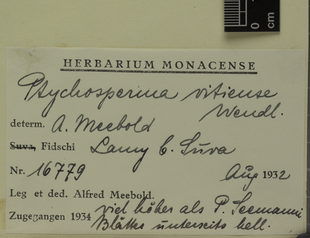 0
cm
HERBARIUM MONACENSE
Ptychosperma vitiense
Wendl.
determ. A. Meebold
Suva, Fidschi Lamy b. Suva
Nr. 16779 Aug 1932
Leg et ded. Alfred Meebold.
Zugegangen 1934 viel höher als P. Seemanni
Blätter unterseits hell.